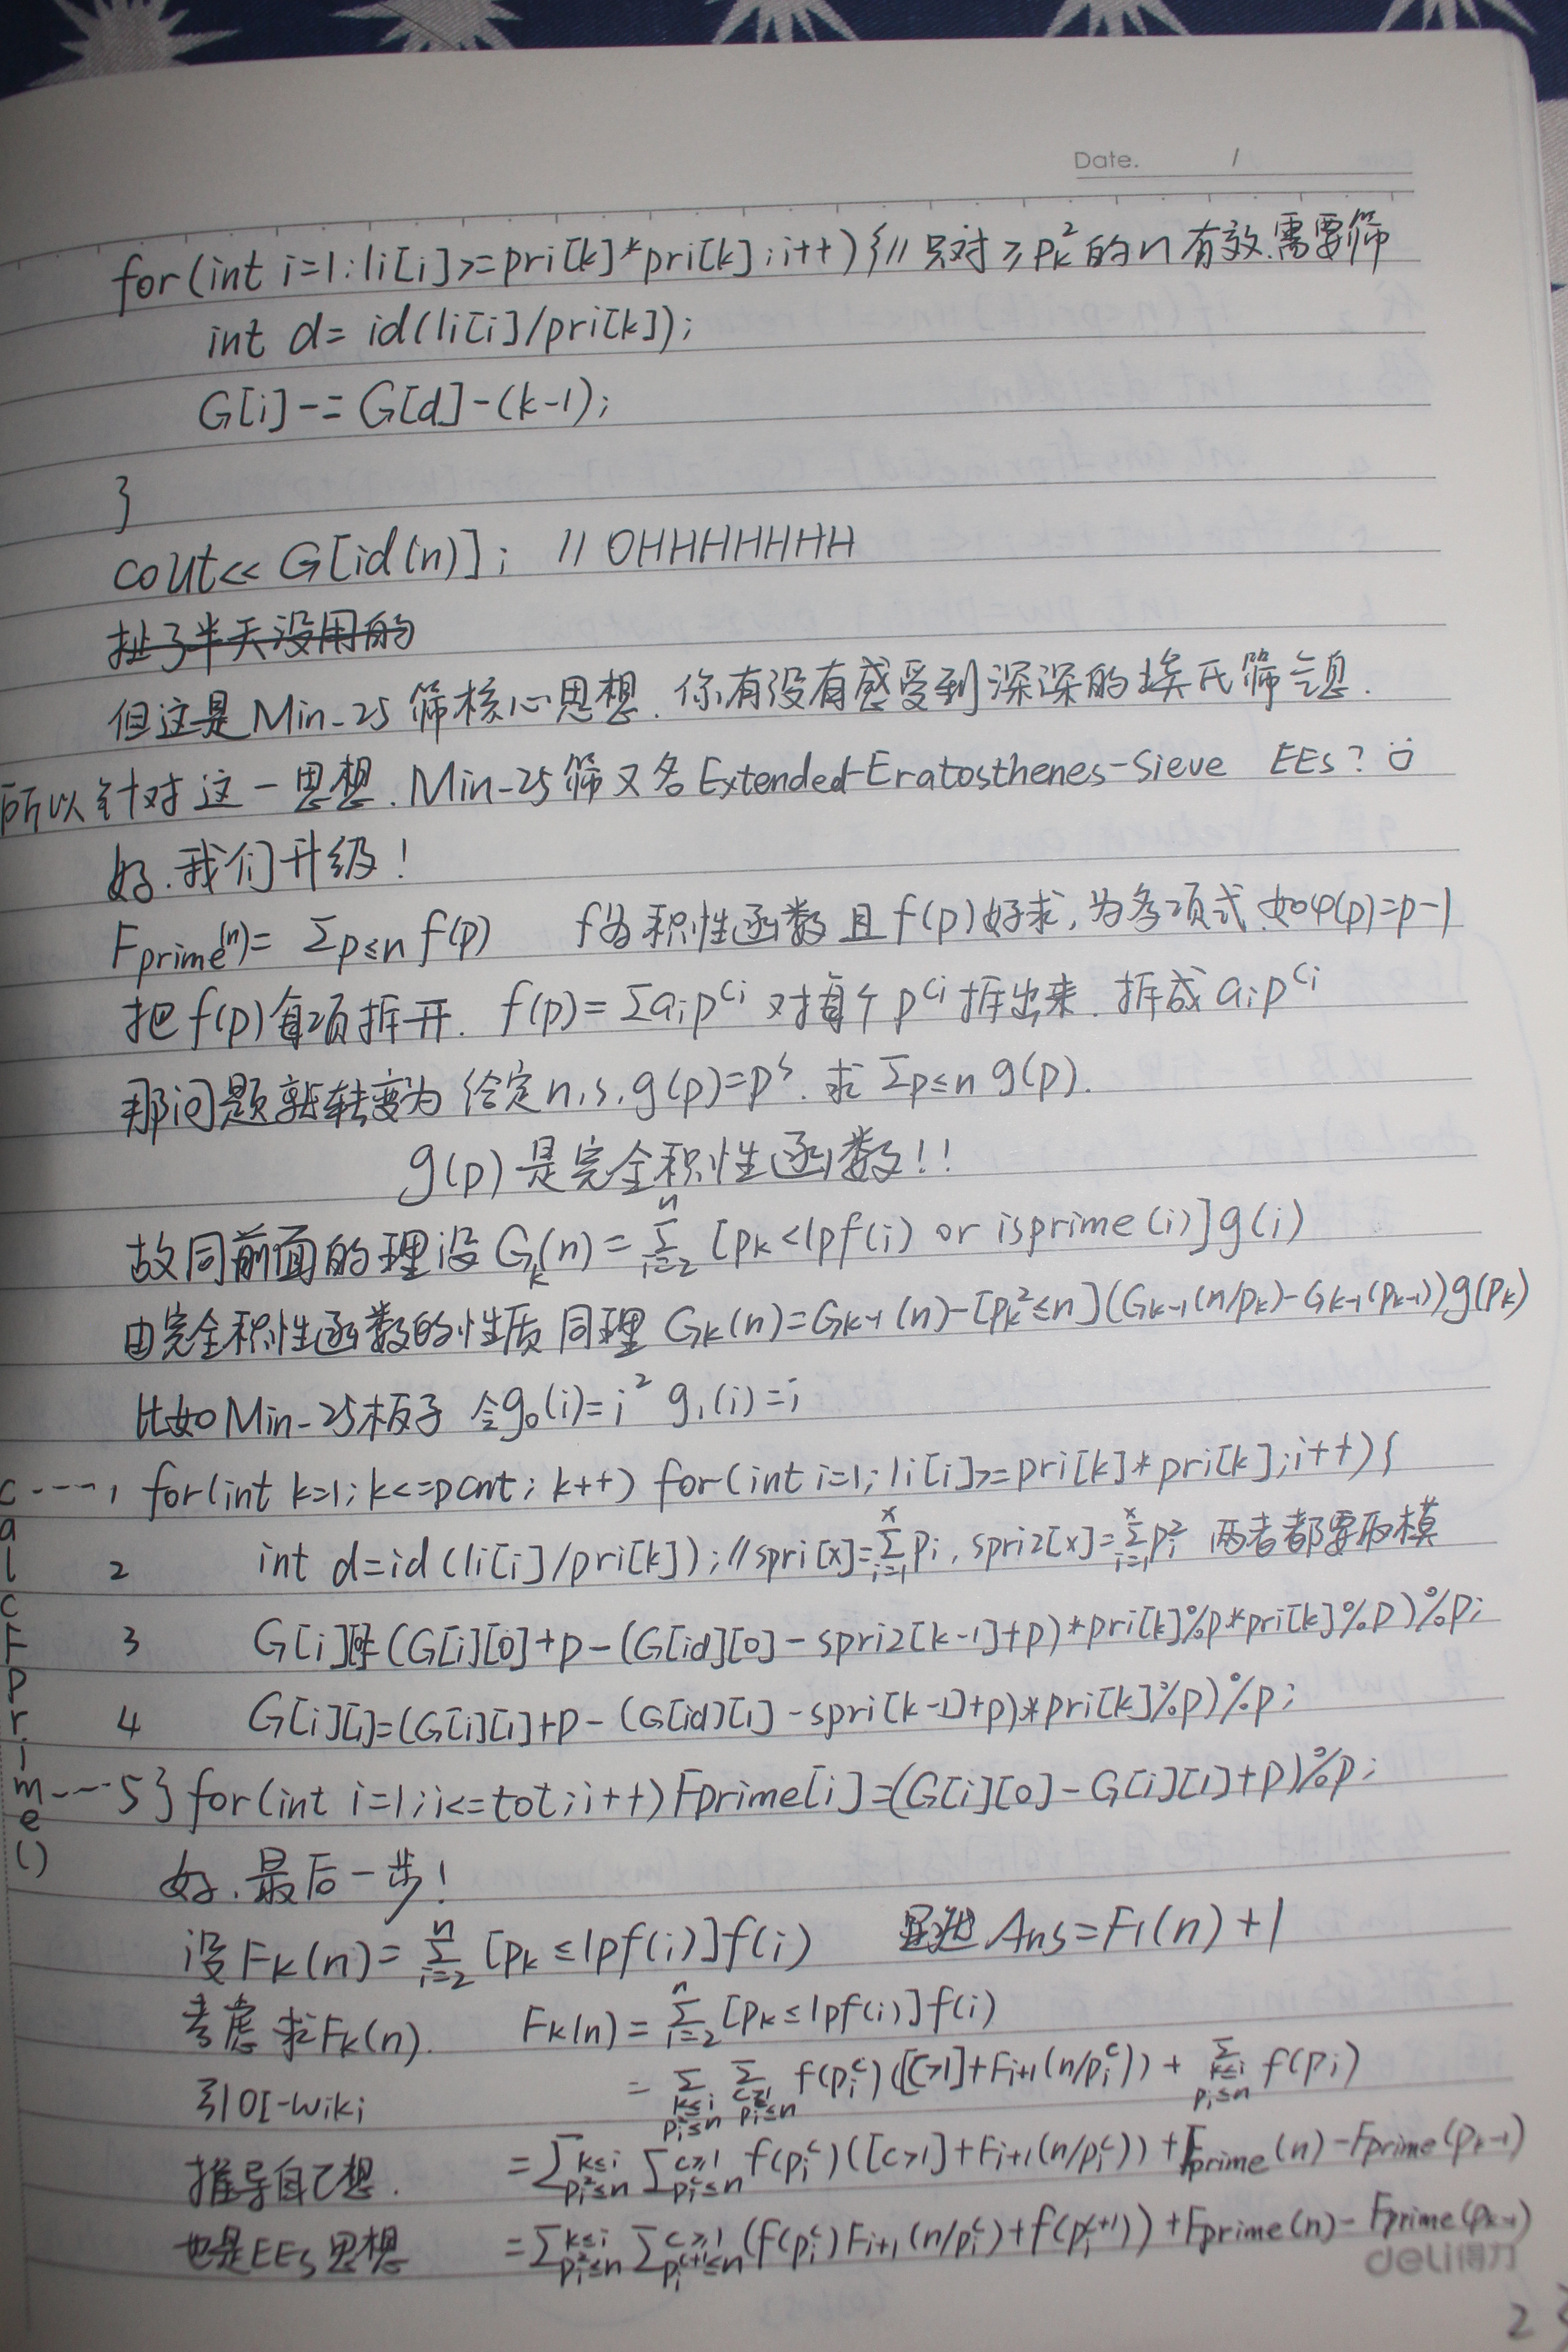 Date. /
for(int i=1:li[i]>=pri[k]*pri[k];i++){//只对≥pk²的n有效.需要筛
int d=id(li[i]/pri[k]);
G[i]-=G[d]-(k-1);
}
cout<<G[id(n)]; //OHHHHHHHH
扯了半天没用的
但这是Min-25筛核心思想.你有没有感受到深深的埃氏筛气息.
所以针对这一思想.Min-25筛又名Extended-Eratosthenes-Sieve EEs?
好.我们升级!
Fprime(n)= Σp≤n f(p) f为积性函数且f(p)好求,为多项式.如φ(p)=p-1
把f(p)每项拆开. f(p)=Σaip^ci 对每个p^ci拆出来.拆成aip^ci
那问题就转变为 给定n,s,g(p)=p^s.求Σp≤n g(p).
g(p)是完全积性函数!!
故同前面的理设Gk(n)=Σ_{i=2}^{n}[pk<lpf(i) or isprime(i)]g(i)
由完全积性函数的性质 同理 Gk(n)=Gk-1(n)-[pk²≤n](Gk-1(n/pk)-Gk-1(pk-1))g(pk)
比如Min-25板子 令g0(i)=i² g1(i)=i
calcFprime()
1 for(int k=1;k<=pcnt;k++) for(int i=1;li[i]>=pri[k]*pri[k];i++){
2 int d=id(li[i]/pri[k]);//spri[x]=Σ_{i=1}^{x}pi,spri2[x]=Σ_{i=1}^{x}pi² 两者都要取模
3 G[i][0]=(G[i][0]+p-(G[id][0]-spri2[k-1]+p)*pri[k]%p*pri[k]%p)%p;
4 G[i][1]=(G[i][1]+p-(G[id][1]-spri[k-1]+p)*pri[k]%p)%p;
5 } for(int i=1;i<=tot;i++)Fprime[i]=(G[i][0]-G[i][1]+p)%p;
好.最后一步!
设Fk(n)=Σ_{i=2}^{n}[pk≤lpf(i)]f(i) 显然Ans=F1(n)+1
考虑求Fk(n). Fk(n)=Σ_{i=2}^{n}[pk≤lpf(i)]f(i)
引OI-wiki =Σ_{k≤i,pi²≤n}Σ_{c≥1,pi^c≤n}f(pi^c)([c>1]+Fi+1(n/pi^c))+Σ_{k≤i,pi≤n}f(pi)
推导自己想. =Σ_{k≤i,pi²≤n}Σ_{c≥1,pi^c≤n}f(pi^c)([c>1]+Fi+1(n/pi^c))+Fprime(n)-Fprime(pk-1)
也是EEs思想 =Σ_{k≤i,pi²≤n}Σ_{c≥1,pi^{c+1}≤n}(f(pi^c)Fi+1(n/pi^c)+f(pi^{c+1}))+Fprime(n)-Fprime(pk-1)
deli得力
2